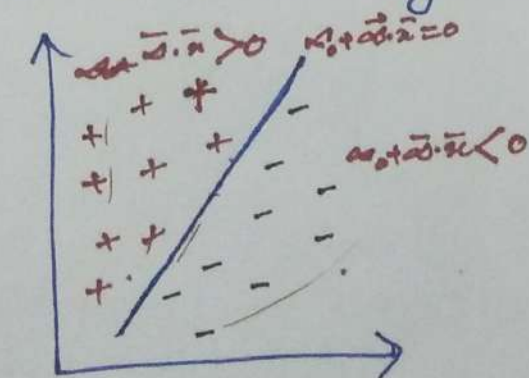 w̄·x̄ > 0
w₀+w⃗·x̄=0
w₀+w̄·x̄ < 0